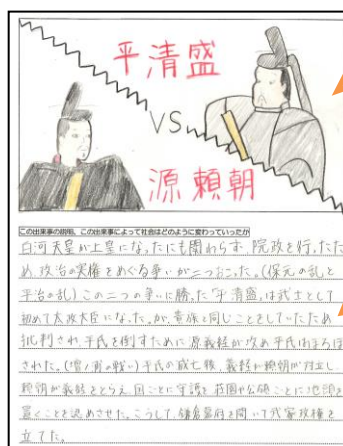 平清盛
VS.
源頼朝
この出来事の説明、この出来事によって社会はどのように変わっていったか
白河天皇が上皇になったにも関わらず、院政を行ったた
め、政治の実権をめぐる争いが二つおこった。(保元の乱と
平治の乱)この二つの争いに勝った「平清盛」は武士として
初めて太政大臣になった。が、貴族と同じことをしていたため
批判され、平氏を倒すために源義経が攻め平氏はほろぼ
された。(壇ノ浦の戦い)平氏の滅亡後、義経と頼朝が対立し、
頼朝が義経をとらえ、国ごとに守護を荘園や公領ごとに地頭を
置くことを認めさせた。こうして、鎌倉幕府を開いて武家政権を
立てた。